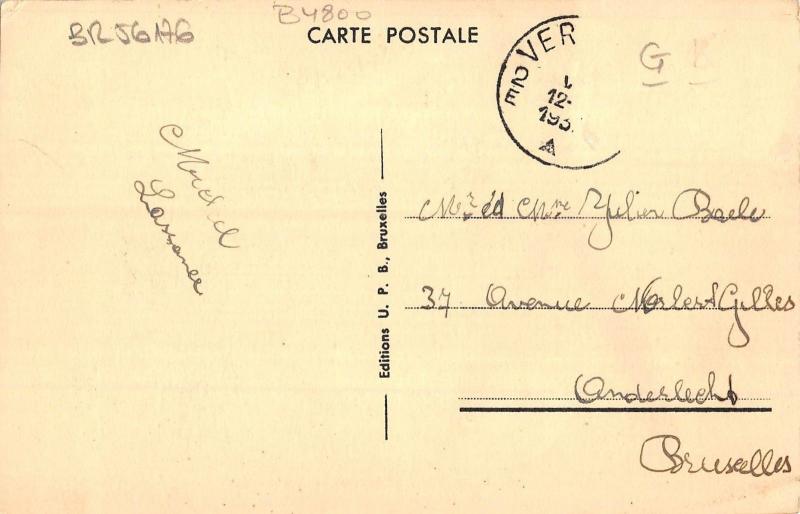 BR56A76
B4800
CARTE POSTALE
VER
E2
12-
193
A
G
Michel
Lassance
Editions U. P. B., Bruxelles
Mr et Mme Julien Baele
37 Avenue Norbert Gilles
Anderlecht
Bruxelles